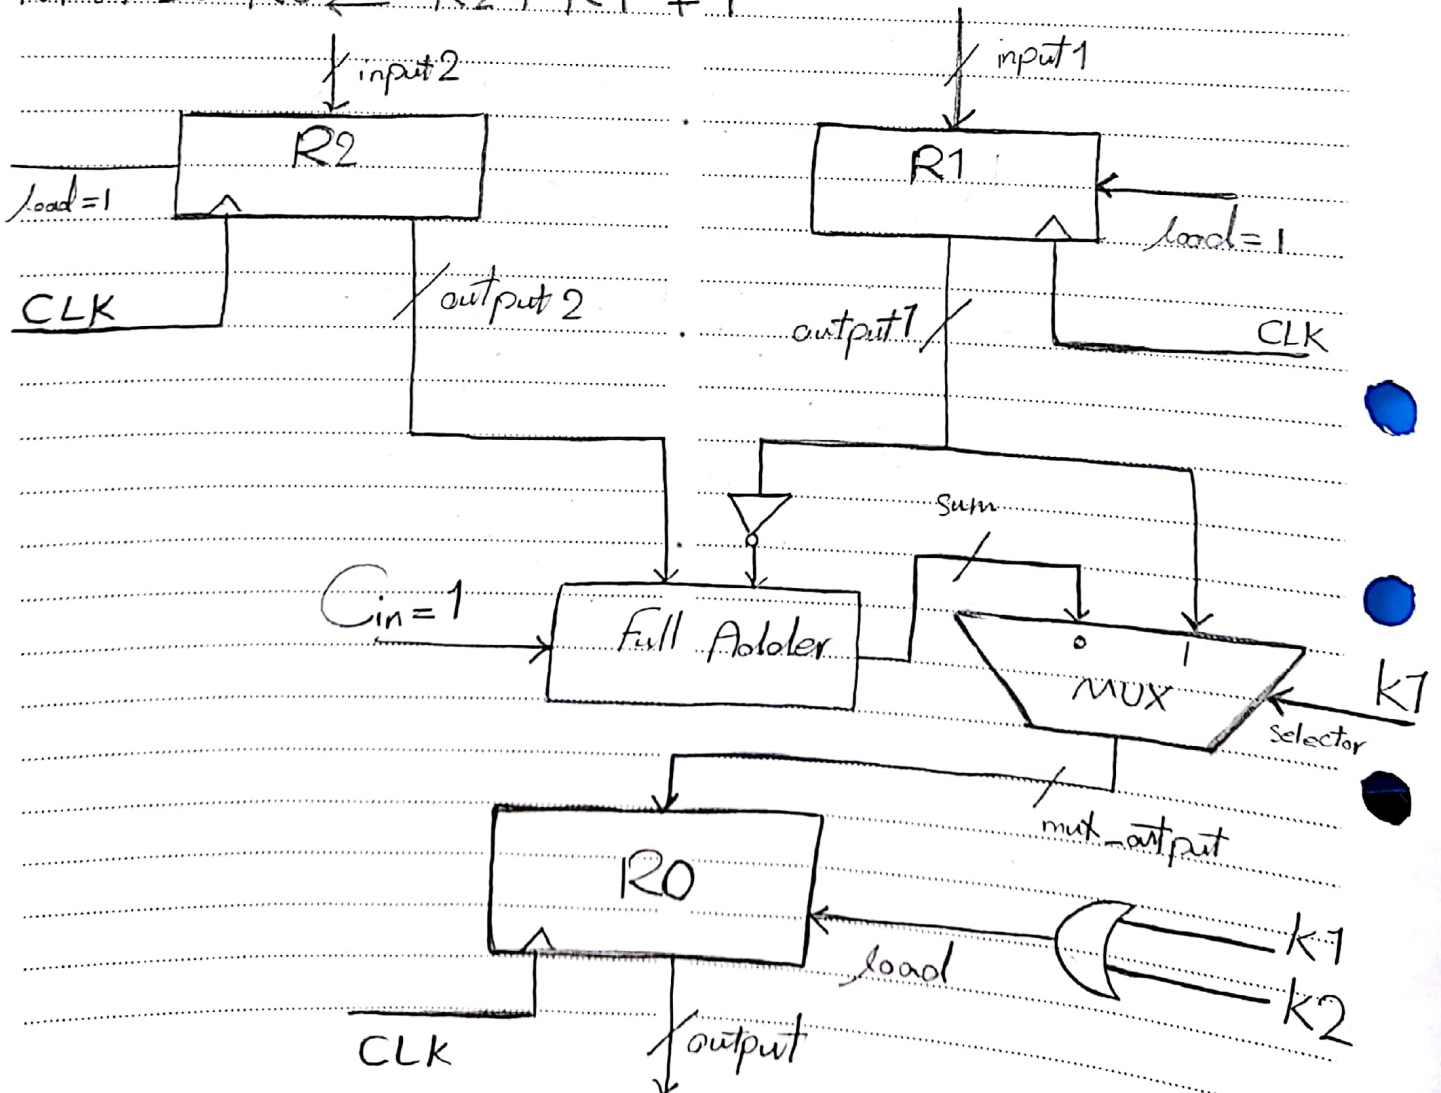 R0 ← R2 + R1 + 1
input 2
input 1
R2
R1
load=1
load=1
CLK
output 2
output 1
CLK
sum
Cin=1
Full Adder
0 1
MUX
k1
selector
mux_output
R0
load
k1
k2
CLK
output